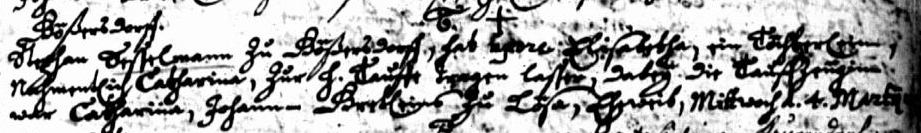 Bößersdorff.
Stephan Sesselmann zu Bößersdorff, hat uxore Elisabetha, ein Töchterlein,
Nahmentlich Catharina, zur h. Tauffe tragen lassen, dabey die Tauffzeugin
war Catharina, Johann Bretleins zu Lösa, Eheweib, Mittwoch d. 4. Martij